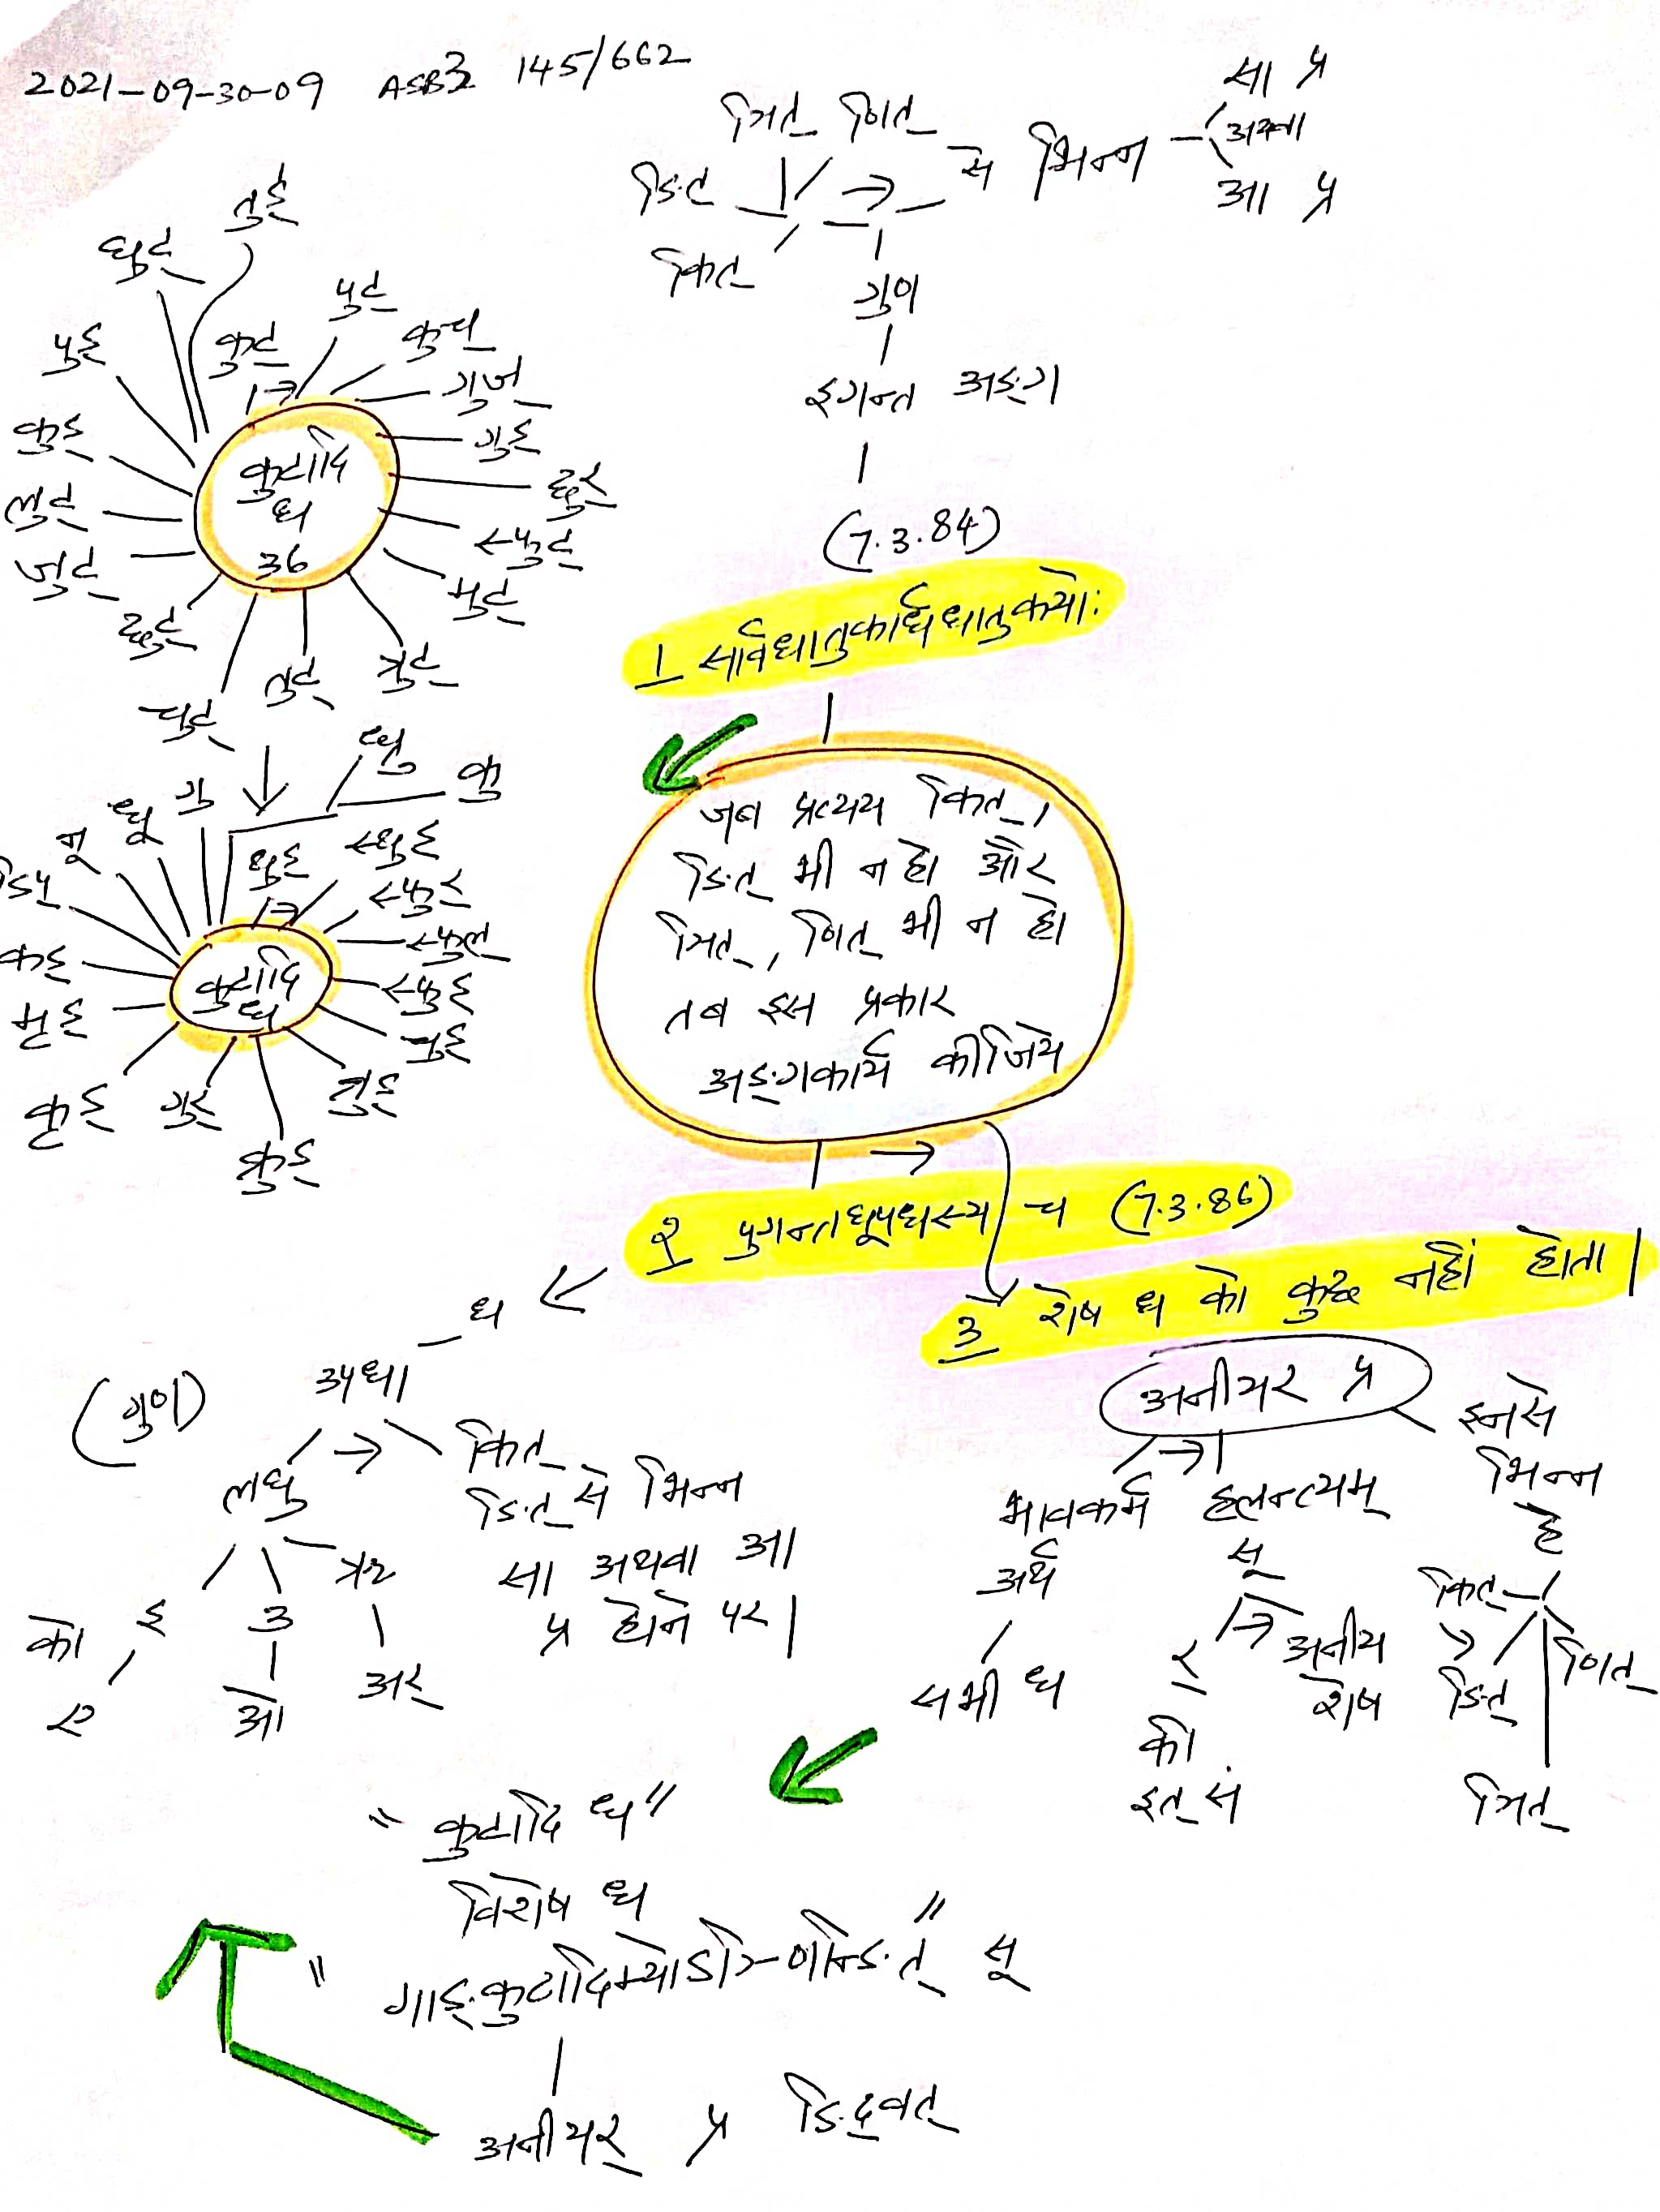 2021-09-30-09 ASB3 145/662
ञित् णित्
ङित्
कित्
से भिन्न
सा प्र
अथवा
आ प्र
गुण
इगन्त अङ्ग
(7.3.84)
1 सार्वधातुकार्धधातुकयोः
जब प्रत्यय कित्,
ङित् भी न हो और
ञित्, णित् भी न हो
तब इस प्रकार
अङ्गकार्य कीजिये
२ पुगन्तलघूपधस्य च (7.3.86)
3 शेष धा को कुछ नहीं होता।
तुड्
घुट्
पुट्
पुड्
कुट्
कुच्
गुज्
कुड्
गुड्
कुटादि
धा
36
छुर्
लुट्
स्फुट्
जुट्
मुट्
छुट्
तुट्
त्रुट्
चुट्
ध्रु
कु
गु
धू
नू
डिप्
थुड्
स्थुड्
स्फुर्
स्फुल्
कड्
कुटादि
धा
स्फुड्
मृड्
चुड्
कृड्
गुर्
व्रुड्
क्रुड्
धा
उपधा
(गुण)
लघु
कित्
ङित् से भिन्न
सा अथवा आ
प्र होने पर।
को
इ
उ
ऋ
ए
ओ
अर्
अनीयर् प्र
इनसे
भिन्न
है
भावकर्म
अर्थ
सभी धा
हलन्त्यम्
सू
र्
की
इत् सं
अनीय
शेष
कित्
ङित्
णित्
ञित्
"कुटादि धा"
विशेष धा
"गाङ्कुटादिभ्योऽञ्णिन्ङित्" सू
अनीयर् प्र ङिद्वत्